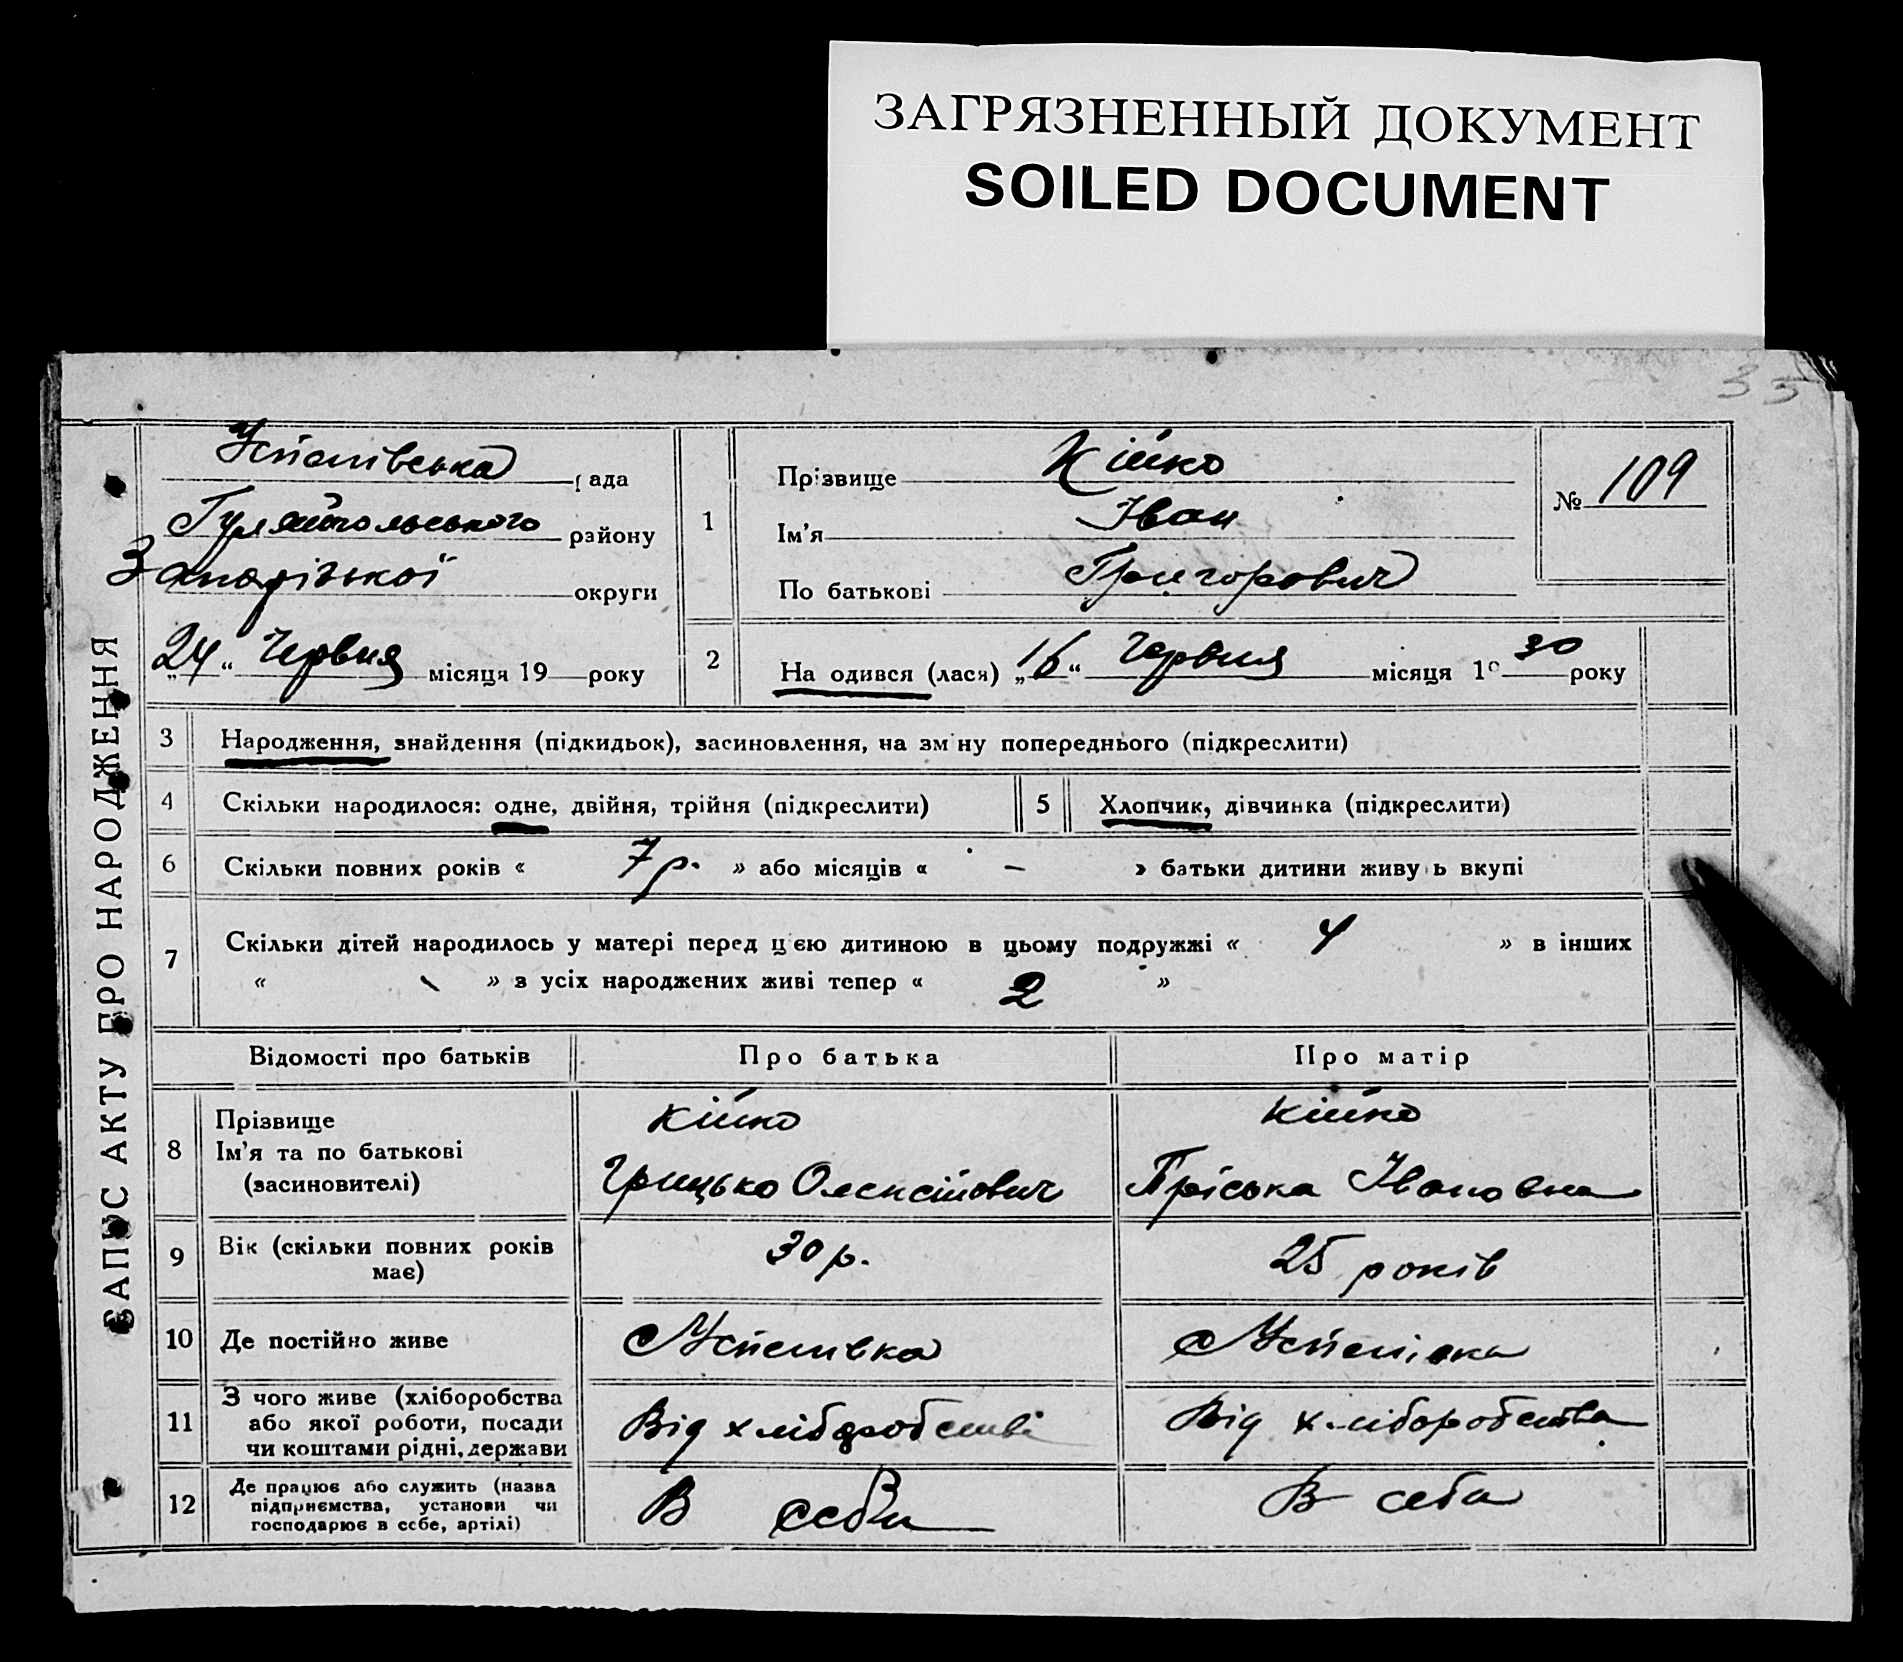 ЗАГРЯЗНЕННЫЙ ДОКУМЕНТ
SOILED DOCUMENT
35
ЗАПИС АКТУ ПРО НАРОДЖЕННЯ
Успенівська рада
Гуляйпольського району
Запорізької округи
„24“ Червня місяця 19 року
1
Прізвище Кійко
Ім'я Іван
По батькові Григорович
№ 109
2
На одився (лася) „16“ Червня місяця 19 30 року
3 Народження, знайдення (підкидьок), засиновлення, на зм ну попереднього (підкреслити)
4 Скільки народилося: одне, двійня, трійня (підкреслити)
5 Хлопчик, дівчинка (підкреслити)
6 Скільки повних років « 7 р. » або місяців « – » батьки дитини живу ь вкупі
7 Скільки дітей народилось у матері перед цією дитиною в цьому подружжі « 4 » в інших
« » з усіх народжених живі тепер « 2 »
Відомості про батьків Про батька Про матір
8
Прізвище
Ім'я та по батькові
(засиновителі)
Кійко
Грицько Олексійович
Кійко
Пріська Івановна
9 Вік (скільки повних років
має)
30 р.
25 років
10 Де постійно живе
с Успенівка
с Успенівка
11
З чого живе (хліборобства
або якої роботи, посади
чи коштами рідні, держави
Від хліборобства
Від хліборобства
12
Де працює або служить (назва
підприємства, установи чи
господарює в себе, артілі)
В себя
В себя